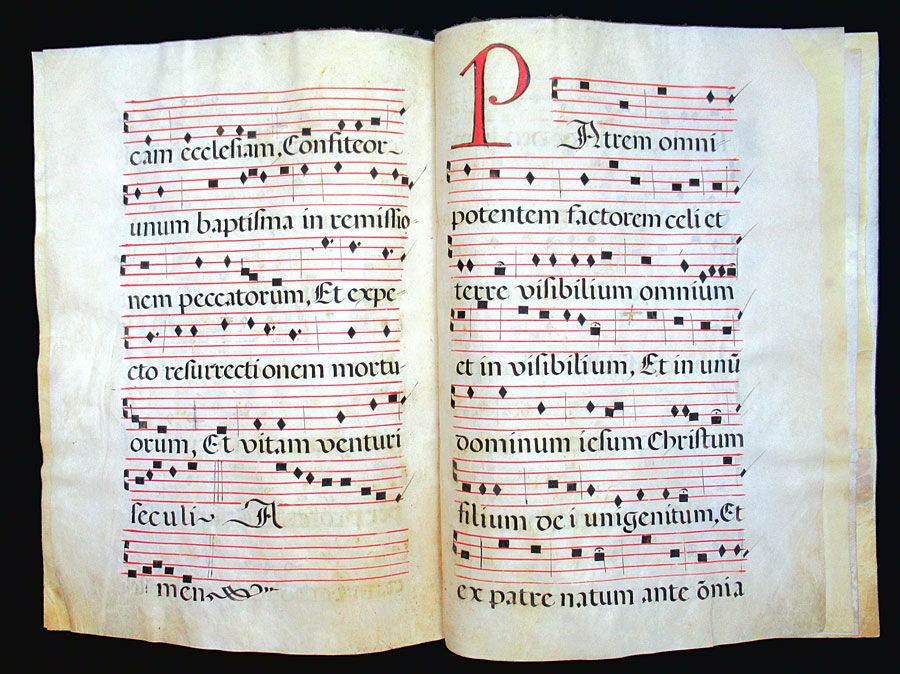 cam ecclesiam, Confiteor
unum baptisma in remissio
nem peccatorum, Et expe-
cto resurrectionem mortu-
orum, Et vitam venturi
seculi A
men
PAtrem omni
potentem factorem celi et
terre visibilium omnium
et in visibilium, Et in unū
dominum iesum Christum
filium dei unigenitum, Et
ex patre natum ante õnia